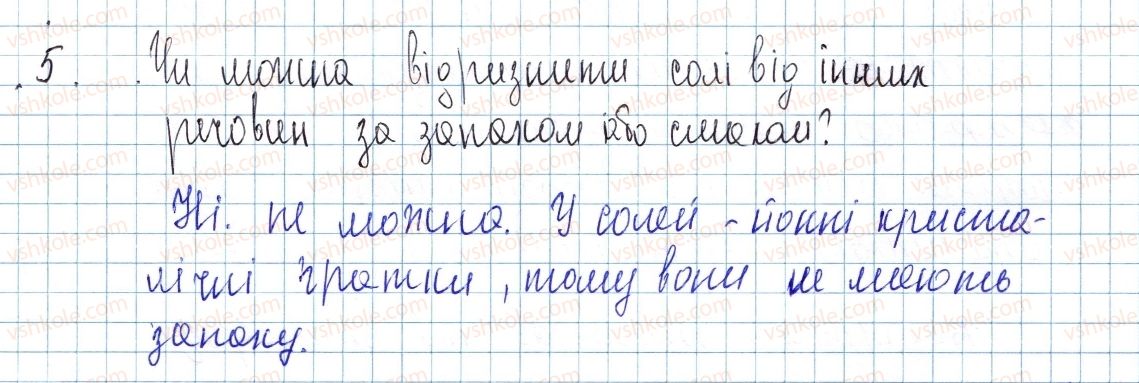 5. Чи можна відризнити солі від інших
речовин за запахом або смаком?
Ні. не можна. У солей - йонні криста-
лічні гратки, тому вони не мають
запаху.